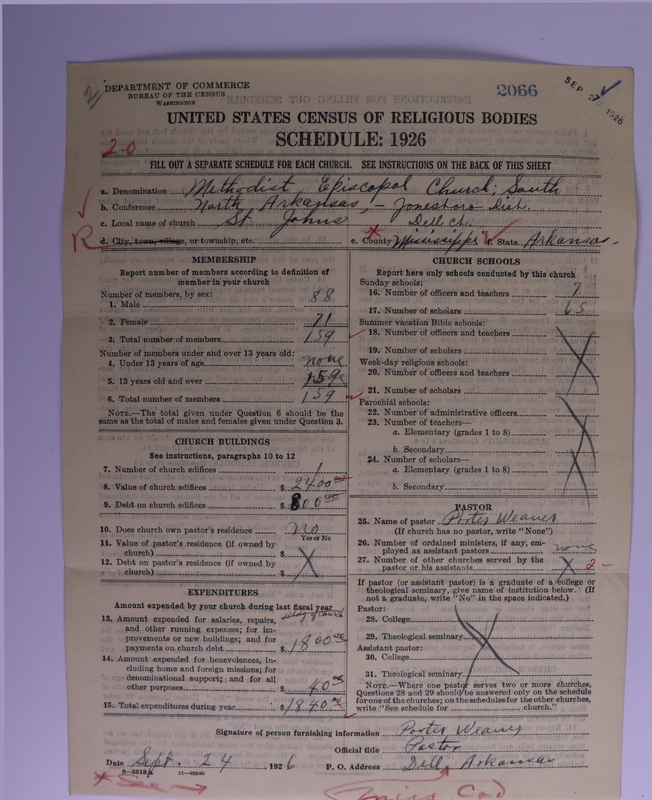 2
DEPARTMENT OF COMMERCE
BUREAU OF THE CENSUS
WASHINGTON
2066
SEP 27 1926
UNITED STATES CENSUS OF RELIGIOUS BODIES
SCHEDULE: 1926
20.
FILL OUT A SEPARATE SCHEDULE FOR EACH CHURCH. SEE INSTRUCTIONS ON THE BACK OF THIS SHEET
a. Denomination Methodist Episcopal Church; South
b. Conference North Arkansas, - Jonesboro Dist.
c. Local name of church St. Johns Dell Ch.
R d. City, town, village, or township, etc. e. County Mississippi f. State. Arkansas.
MEMBERSHIP
Report number of members according to definition of
member in your church
Number of members, by sex:
1. Male 88
2. Female 71
3. Total number of members 159
Number of members under and over 13 years old:
4. Under 13 years of age none
5. 13 years old and over 159
6. Total number of members 159
NOTE.—The total given under Question 6 should be the
same as the total of males and females given under Question 3.
CHURCH BUILDINGS
See instructions, paragraphs 10 to 12
7. Number of church edifices 1
8. Value of church edifices $ 2400.00
9. Debt on church edifices $ 800.00
10. Does church own pastor's residence No
Yes or No
11. Value of pastor's residence (if owned by
church) $
12. Debt on pastor's residence (if owned by
church) $ X
EXPENDITURES
Amount expended by your church during last fiscal year
13. Amount expended for salaries, repairs,
and other running expenses; for im-
provements or new buildings; and for
payments on church debt $ 1800.00
14. Amount expended for benevolences, in-
cluding home and foreign missions; for
denominational support; and for all
other purposes $ 40.00
15. Total expenditures during year $ 1840.00
CHURCH SCHOOLS
Report here only schools conducted by this church
Sunday schools:
16. Number of officers and teachers 7
17. Number of scholars 65
Summer vacation Bible schools:
18. Number of officers and teachers
19. Number of scholars
Week-day religious schools:
20. Number of officers and teachers
21. Number of scholars
Parochial schools:
22. Number of administrative officers
23. Number of teachers—
a. Elementary (grades 1 to 8)
b. Secondary
24. Number of scholars—
a. Elementary (grades 1 to 8)
b. Secondary
PASTOR
25. Name of pastor Porter Weaver
(If church has no pastor, write "None")
26. Number of ordained ministers, if any, em-
ployed as assistant pastors none
27. Number of other churches served by the
pastor or his assistants X 2-
If pastor (or assistant pastor) is a graduate of a college or
theological seminary, give name of institution below. (If
not a graduate, write "No" in the space indicated.)
Pastor:
28. College
29. Theological seminary
Assistant pastor:
30. College
31. Theological seminary
NOTE.—Where one pastor serves two or more churches,
Questions 28 and 29 should be answered only on the schedule
for one of the churches; on the schedules for the other churches,
write "See schedule for church."
Signature of person furnishing information Porter Weaver
Official title Pastor
Date Sept. 24, 1926 P. O. Address Dell, Arkansas
11—9024b